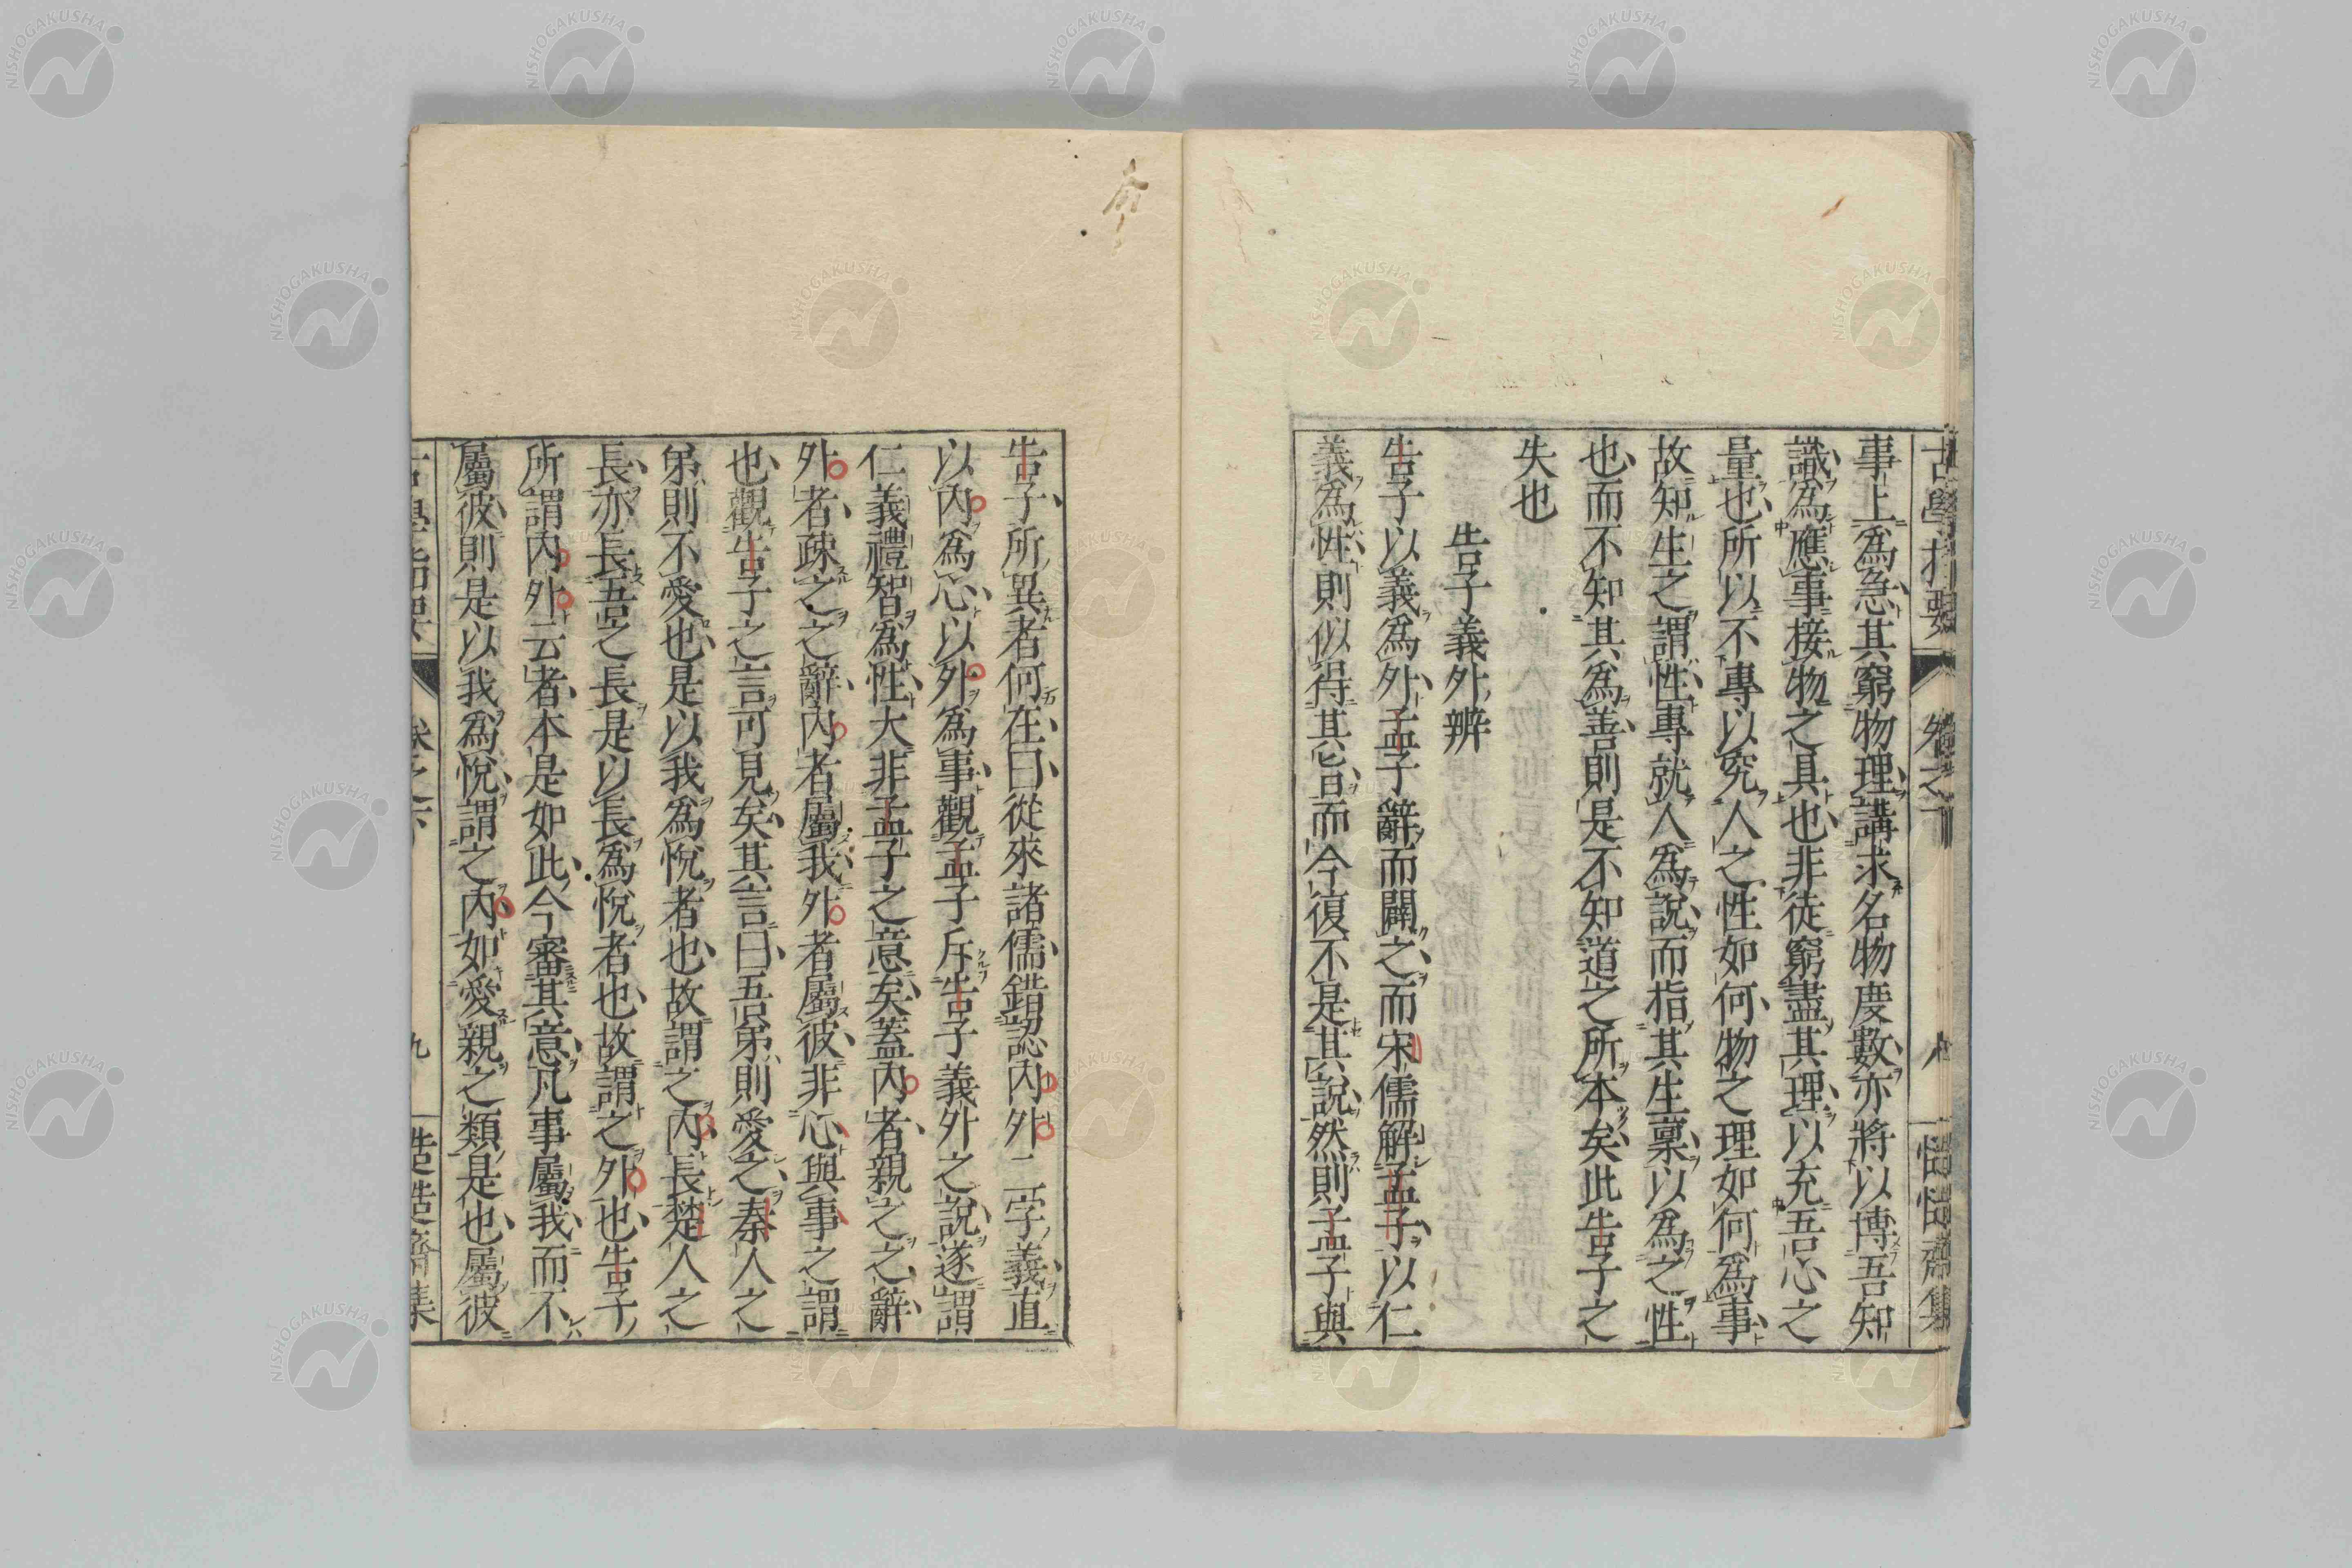 古學指要
卷之下
八
慥慥齋集
事上爲急其窮物理講求名物度數亦將以博吾知
識爲應事接物之具也非徒窮盡其理以充吾心之
量也所以不專以究人之性如何物之理如何爲事
故知生之謂性專就人爲説而指其生稟以為之性
也而不知其為善則是不知道之所本矣此告子之
失也
告子義外辨
告子以義爲外孟子辭而闢之而宋儒解孟子以仁
義為性則似得其旨而今復不是其説然則孟子與
告子所異者何在曰從來諸儒錯認內外二字義直
以內爲心以外爲事觀孟子斥告子義外之説遂謂
仁義禮智爲性大非孟子之意矣蓋內者親之之辭
外者疎之之辭內者屬我外者屬彼非心與事之謂
也觀告子之言可見矣其言曰吾弟則愛之秦人之
弟則不愛也是以我爲悅者也故謂之內長楚人之
長亦長吾之長是以長爲悅者也故謂之外也告子
所謂內外云者本是如此今審其意凡事屬我而不
屬彼則是以我爲悅謂之內如愛親之類是也屬彼
古學指要
卷之下
九
慥慥齋集
NISHOGAKUSHA